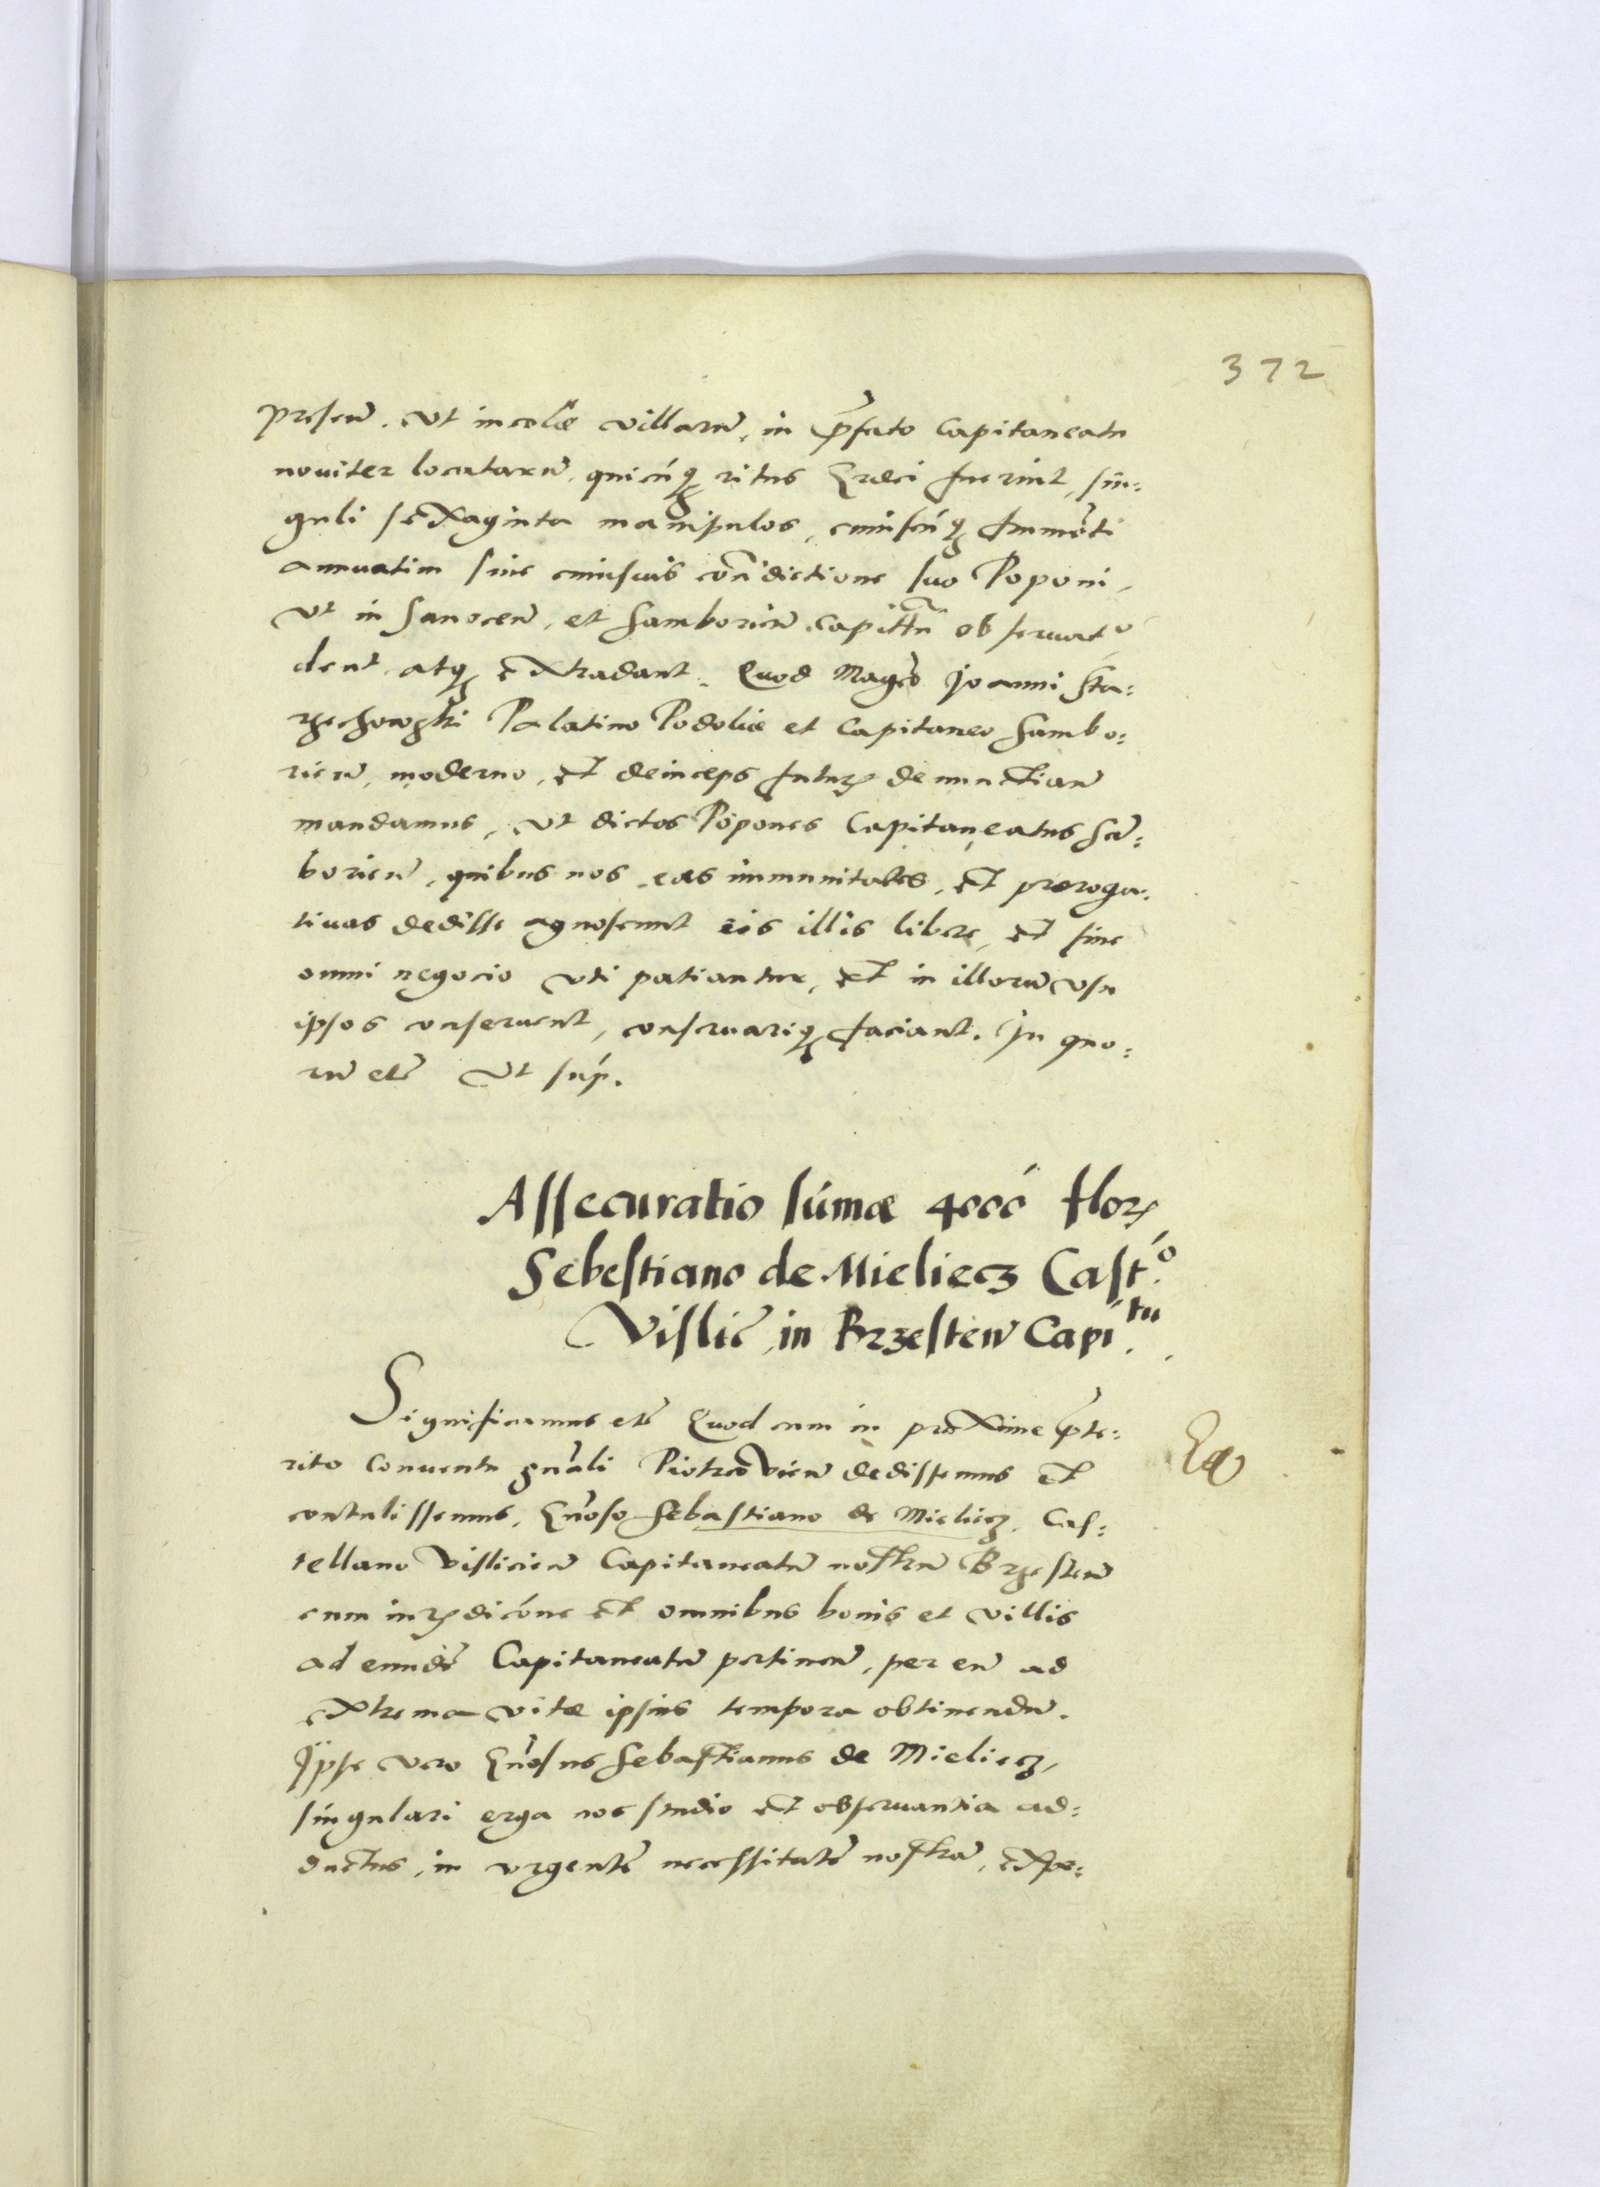 372
presen̄. Vt incolæ villarū, in p̄fato Capitaneatu
noviter locatarū, quicūq₃ ritus Græci fuerint, sin:
guli sexaginta manipulos, cuiuscūq₃ frumēti
annuatim sine cuiusvis cōn̄dictione suo Poponi,
Vt in Sanocen̄, et Samborien̄ Capittū observatr
dent atq₃ extradant. Quod Mag̃co Joanni Sta:
rzechowski Palatino Podoliæ et Capitaneo Sambo:
rien̄, moderno, et deinceps futuris denunctian̄
mandamus, Vt dictos Popones Capitaneatus Sā:
borien̄, quibus nos eas immunitates, et præroga:
tivas dedisse agnoscunt eis illis libere, et sine
omni negocio vti patiantur, et in illorū vsu
ipsos conservent, conservariq₃ faciant. In quo:
rū etc̄ Vt sup̄.
Assecuratio sum̄æ 4000 flor
Sebestiano de Mieliecz Castᵒ.
Vislic̄, in Brzesten̄ Capiᵗᵘ.
Significamus etc̄ Quod cum in proxime p̄te:
rito Conventu gn̄ali Piotrcovien̄ dedissemus et
contulissemus, Gn̄oso Sebastiano de Mieliecz, Cas:
tellano Vislicien̄ Capitaneatū nostrū Brzesten̄
cum iurisdicōne et omnibus bonis et villis
ad eundē Capitaneatū pertinen̄, per eū ad
extrema vitæ ipsius tempora obtinendū.
Ipse vero Gn̄osus Sebastianus de Mieliecz,
singulari erga nos studio et observantia ad:
ductus, in vrgentē necessitatē nostrā, expe: